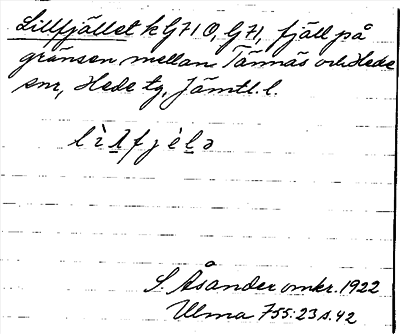 Lillfjället k G 71 O, G 71, fjäll på
gränsen mellan Tännäs och Hede
snr, Hede tg, Jämtl. l.
lìlfjélə
S. Åsander omkr. 1922
Ulma 755:23 s. 42